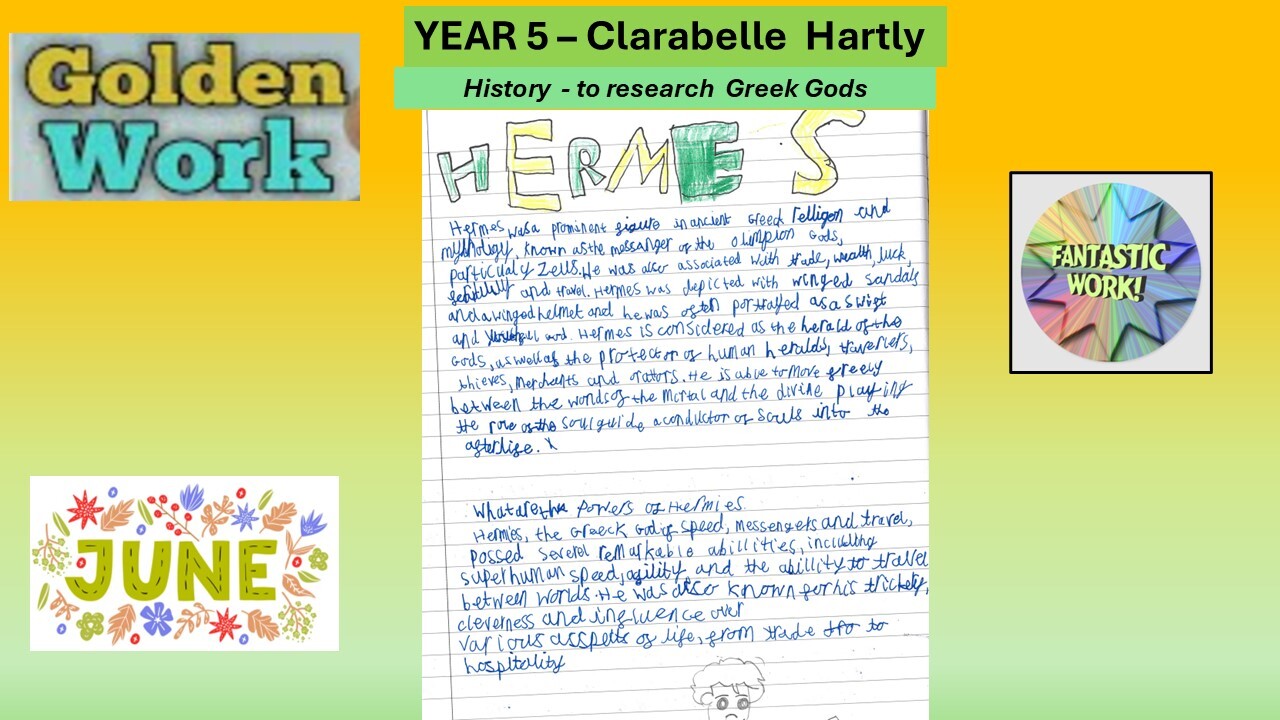 YEAR 5 – Clarabelle Hartly
History - to research Greek Gods
Golden
Work
HERMES
Hermes was a prominent in ancient Greek relligon and
mythology, known as the messanger of the olimpion Gods,
particualy Zeus. He was also associated with trade, wealth, luck,
and travel. Hermes was depicted with winged sandals
and a winged helmet and he was often portrayed as a swift
and god. Hermes is considered as the herald of the
Gods, as well as the protector of human heralds, travellers,
thieves, merchants and orators. He is able to move freely
between the worlds of the mortal and the divine playing
the role of the soul guide, a conductor of souls into the
afterlife.
FANTASTIC
WORK!
JUNE
What are the Powers of Hermies.
Hermies, the Greeck God of speed, messengers and travel,
possed several remarkable abillities, including
superhuman speed, agility and the abillity to travel
between worlds. He was also known for his trickety,
cleverness and influence over
various of life, from trade to
hospitality